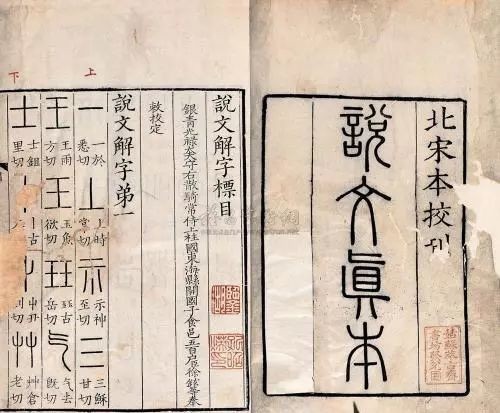 北宋本校刊
說文眞本
說文解字標目
銀青光祿大夫守右散騎常侍上柱國東海縣開國子食邑五百戶臣徐鉉等奉
敕校定
說文解字弟一
上
一 一於悉切 丄 丄時掌切 示 示神至切 三 三穌甘切
王 王雨方切 玉 玉魚欲切 玨 玨古岳切 气 气去旣切
下
士 士鉏里切 丨 丨古 屮 屮丑列切 艸 艸倉老切